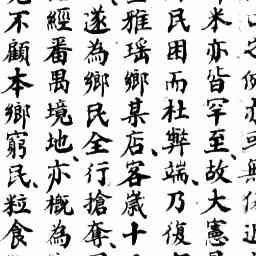 米亦皆罕至、故大憲
民困而杜弊端、乃復
雅瑤鄉某店、客歲十
遂為鄉民全行搶奪、
經番禺境地、亦概為
不顧本鄉窮民、粒食